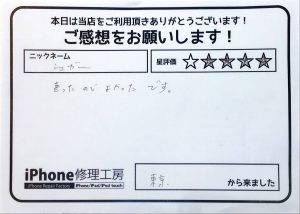 本日は当店をご利用頂きありがとうございます！
ご感想をお願いします！
ニックネーム
星評価 ☆★★★★
よかったです。
iPhone修理工房
iPhone Repair Factory
iPhone/iPad/iPod touch
東京 から来ました